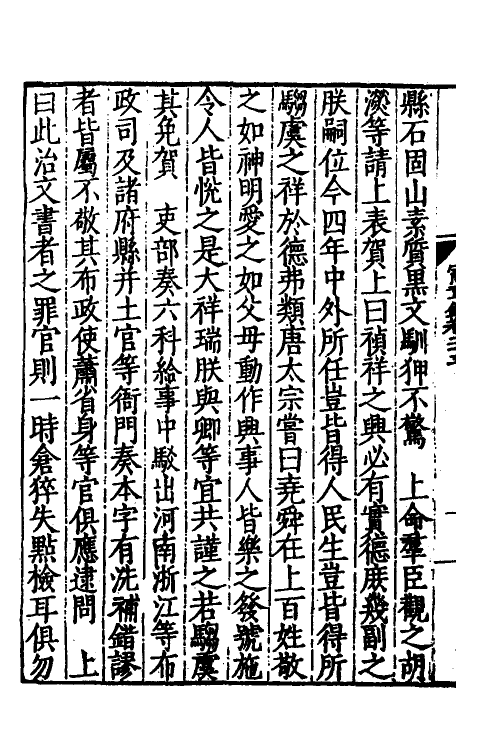 縣石固山素質黒文馴狎不驚　上命羣臣觀之胡
濙等請上表賀上曰禎祥之興必有實德庶幾副之
朕嗣位今四年中外所任豈皆得人民生豈皆得所
騶虞之祥於德弗類唐太宗嘗曰堯舜在上百姓敬
之如神明愛之如父母動作興事人皆樂之發號施
令人皆悅之是大祥瑞朕與卿等宜共謹之若騶虞
其免賀　吏部奏六科給事中駁出河南浙江等布
政司及諸府縣并土官等衙門奏本字有洗補錯謬
者皆屬不敬其布政使蕭省身等官俱應逮問　上
曰此治文書者之罪官則一時倉猝失點檢耳俱勿